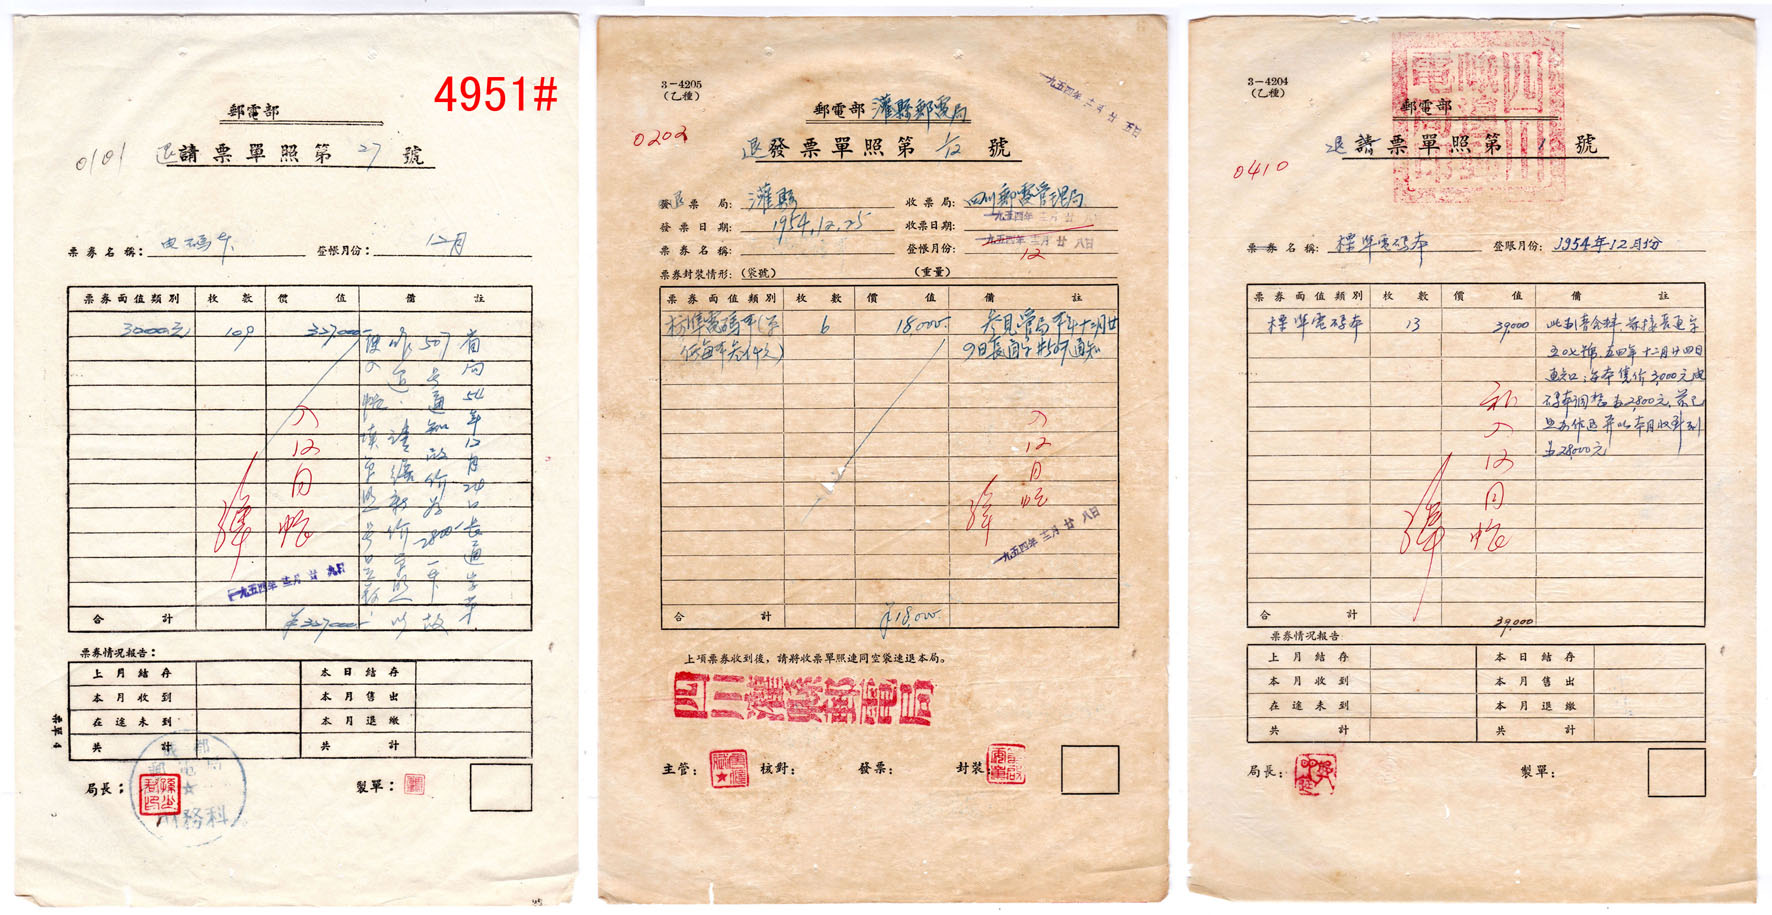 4951#
郵電部
0101
退請票單照第27號
票券名稱：電碼本 登帳月份：12月
票券面值類別 枚數 價值 備註
3000元 109 327000-
省局54年12月24日長通字第
507号通知改价为2800-一本故
入12月帐
一九五四年 十二月 廿九日
合計 ¥327000-
票券情況報告：
上月結存 本日結存
本月收到 本月售出
在途未到 本月退繳
共計 共計
票單4
成都
郵電局
財務科
局長： 製單：
3-4205
(乙種)
一九五四年 十二月 廿五日
郵電部 灌縣郵電局
0202
退發票單照第1/12號
發退票局：灌縣 收票局：四川郵電管理局
發票日期：1954.12.25 收票日期：一九五四年 十二月 廿八日
票券名稱： 登帳月份：一九五四年 十二月 廿八日
12
票券封裝情形：(袋號) (重量)
票券面值類別 枚數 價值 備註
标準電碼本 6 18000- 参見管局本年十二月廿
9日長通字#507通知
入12月帐
一九五四年 十二月 廿八日
合計 ¥18,000-
上項票券收到後，請將收票單照連同空袋速退本局。
主管： 核對： 發票： 封裝：
3-4204
(乙種)
郵電部
0410
退請票單照第1號
票券名稱：標準電码本 登賬月份：1954年12月份
票券面值類別 枚數 價值 備註
標準電码本 13 39,000
五〇七號.五四年十二月廿四日
通知：每本售价3,000元电
码本调整为2,800元
为28,000元
入12月帐
合計 39,000
票券情況報告
上月結存 本日結存
本月收到 本月售出
在途未到 本月退繳
共計 共計
局長： 製單：